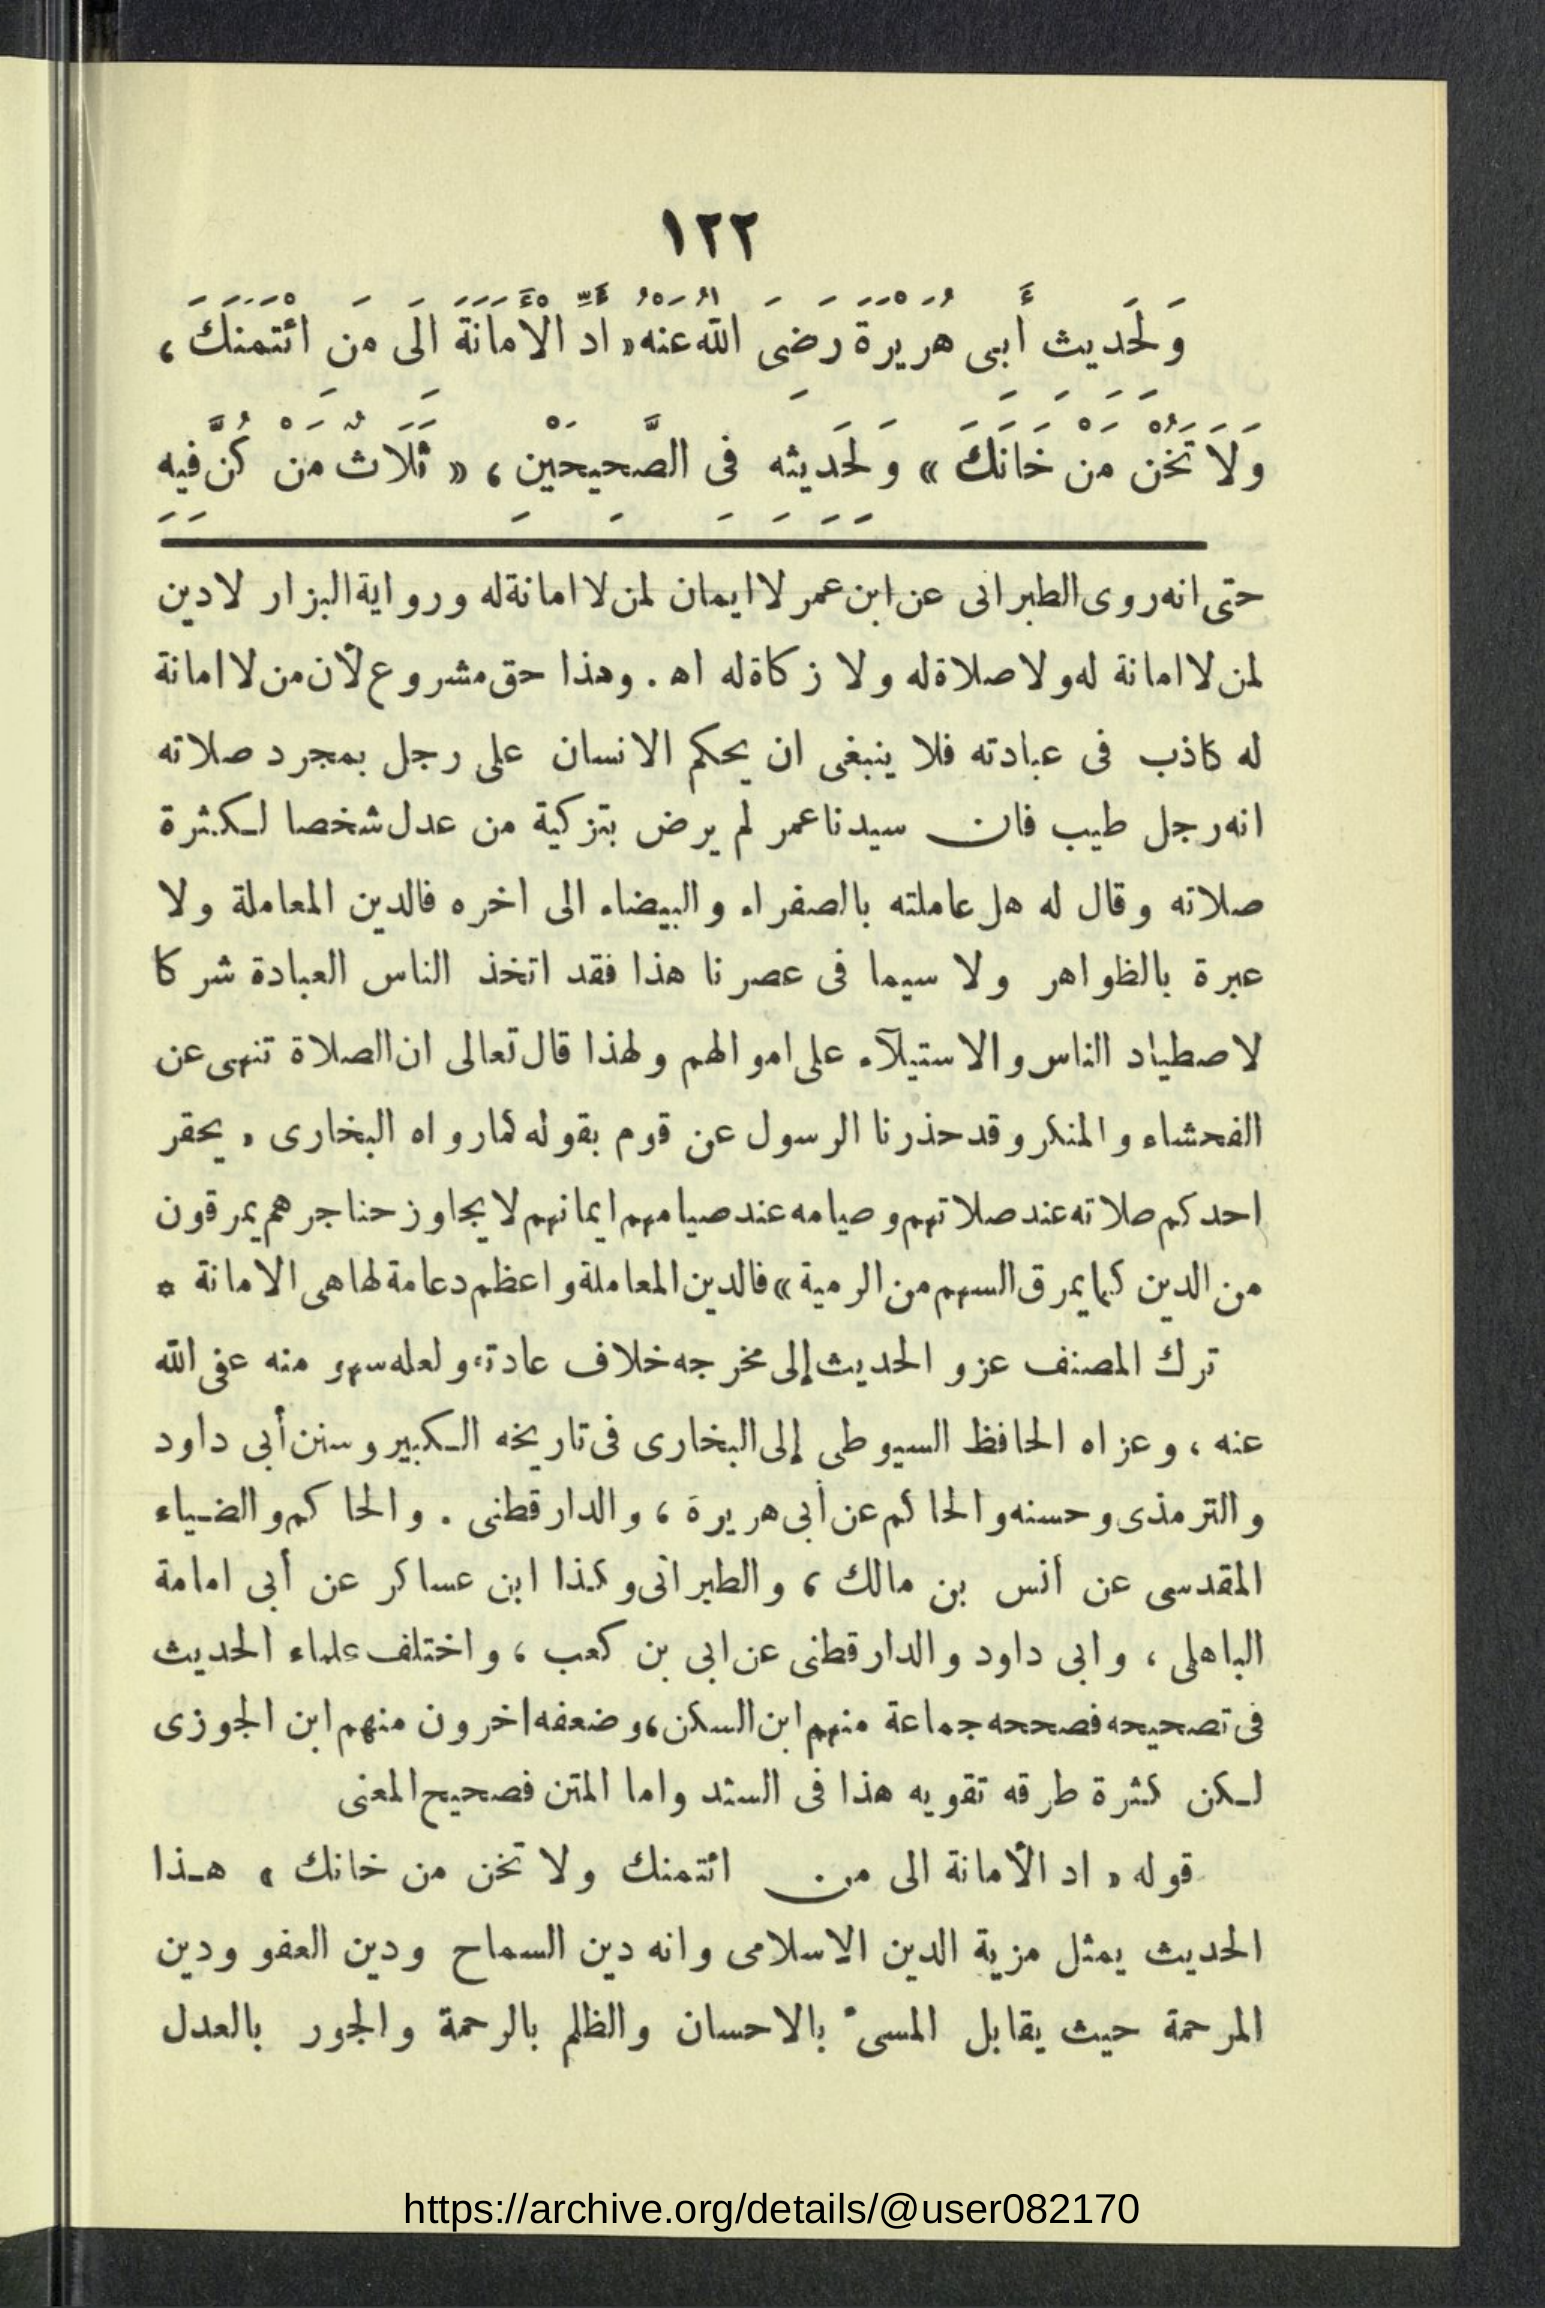 ١٢٢
وَلَحَدِيثِ أَبِى هُرَيْرَةَ رَضِىَ اللهُ عَنْهُ « أَدِّ الْأَمَانَةَ الَى مَنِ ائْتَمَنَكَ ،
وَلَا تَخُنْ مَنْ خَانَكَ » وَلَحَدِيثِهِ فِى الصَّحِيحَيْنِ ، « ثَلَاثٌ مَنْ كُنَّ فِيهِ
حتى انه روى الطبرانى عن ابن عمر لا ايمان لمن لا امانة له ورواية البزار لا دين
لمن لا امانة له ولا صلاة له ولا زكاة له اه . وهذا حق مشروع لأن من لا امانة
له كاذب فى عبادته فلا ينبغى ان يحكم الانسان على رجل بمجرد صلاته
انه رجل طيب فان سيدنا عمر لم يرض بتزكية من عدل شخصا لكثرة
صلاته وقال له هل عاملته بالصفراء والبيضاء الى اخره فالدين المعاملة ولا
عبرة بالظواهر ولا سيما فى عصرنا هذا فقد اتخذ الناس العبادة شركا
لاصطياد الناس والاستيلآء على اموالهم ولهذا قال تعالى ان الصلاة تنهى عن
الفحشاء والمنكر وقد حذرنا الرسول عن قوم بقوله كما رواه البخارى « يحقر
احدكم صلاته عند صلاتهم وصيامه عند صيامهم ايمانهم لا يجاوز حناجرهم يمرقون
من الدين كما يمرق السهم من الرمية » فالدين المعاملة واعظم دعامة لها هى الامانة *
ترك المصنف عزو الحديث إلى مخرجه خلاف عادته ولعله سهو منه عفى الله
عنه ، وعزاه الحافظ السيوطى إلى البخارى فى تاريخه الكبير وسنن أبى داود
والترمذى وحسنه والحاكم عن أبى هريرة ، والدارقطنى . والحاكم والضياء
المقدسى عن أنس بن مالك ، والطبرانى وكذا ابن عساكر عن أبى امامة
الباهلى ، وابى داود والدارقطنى عن ابى بن كعب ، واختلف علماء الحديث
فى تصحيحه فصححه جماعة منهم ابن السكن ، وضعفه اخرون منهم ابن الجوزى
لكن كثرة طرقه تقويه هذا فى السند واما المتن فصحيح المعنى
قوله « اد الأمانة الى من ائتمنك ولا تخن من خانك » هذا
الحديث يمثل مزية الدين الاسلامى وانه دين السماح ودين العفو ودين
المرحمة حيث يقابل المسىء بالاحسان والظلم بالرحمة والجور بالعدل
https://archive.org/details/@user082170